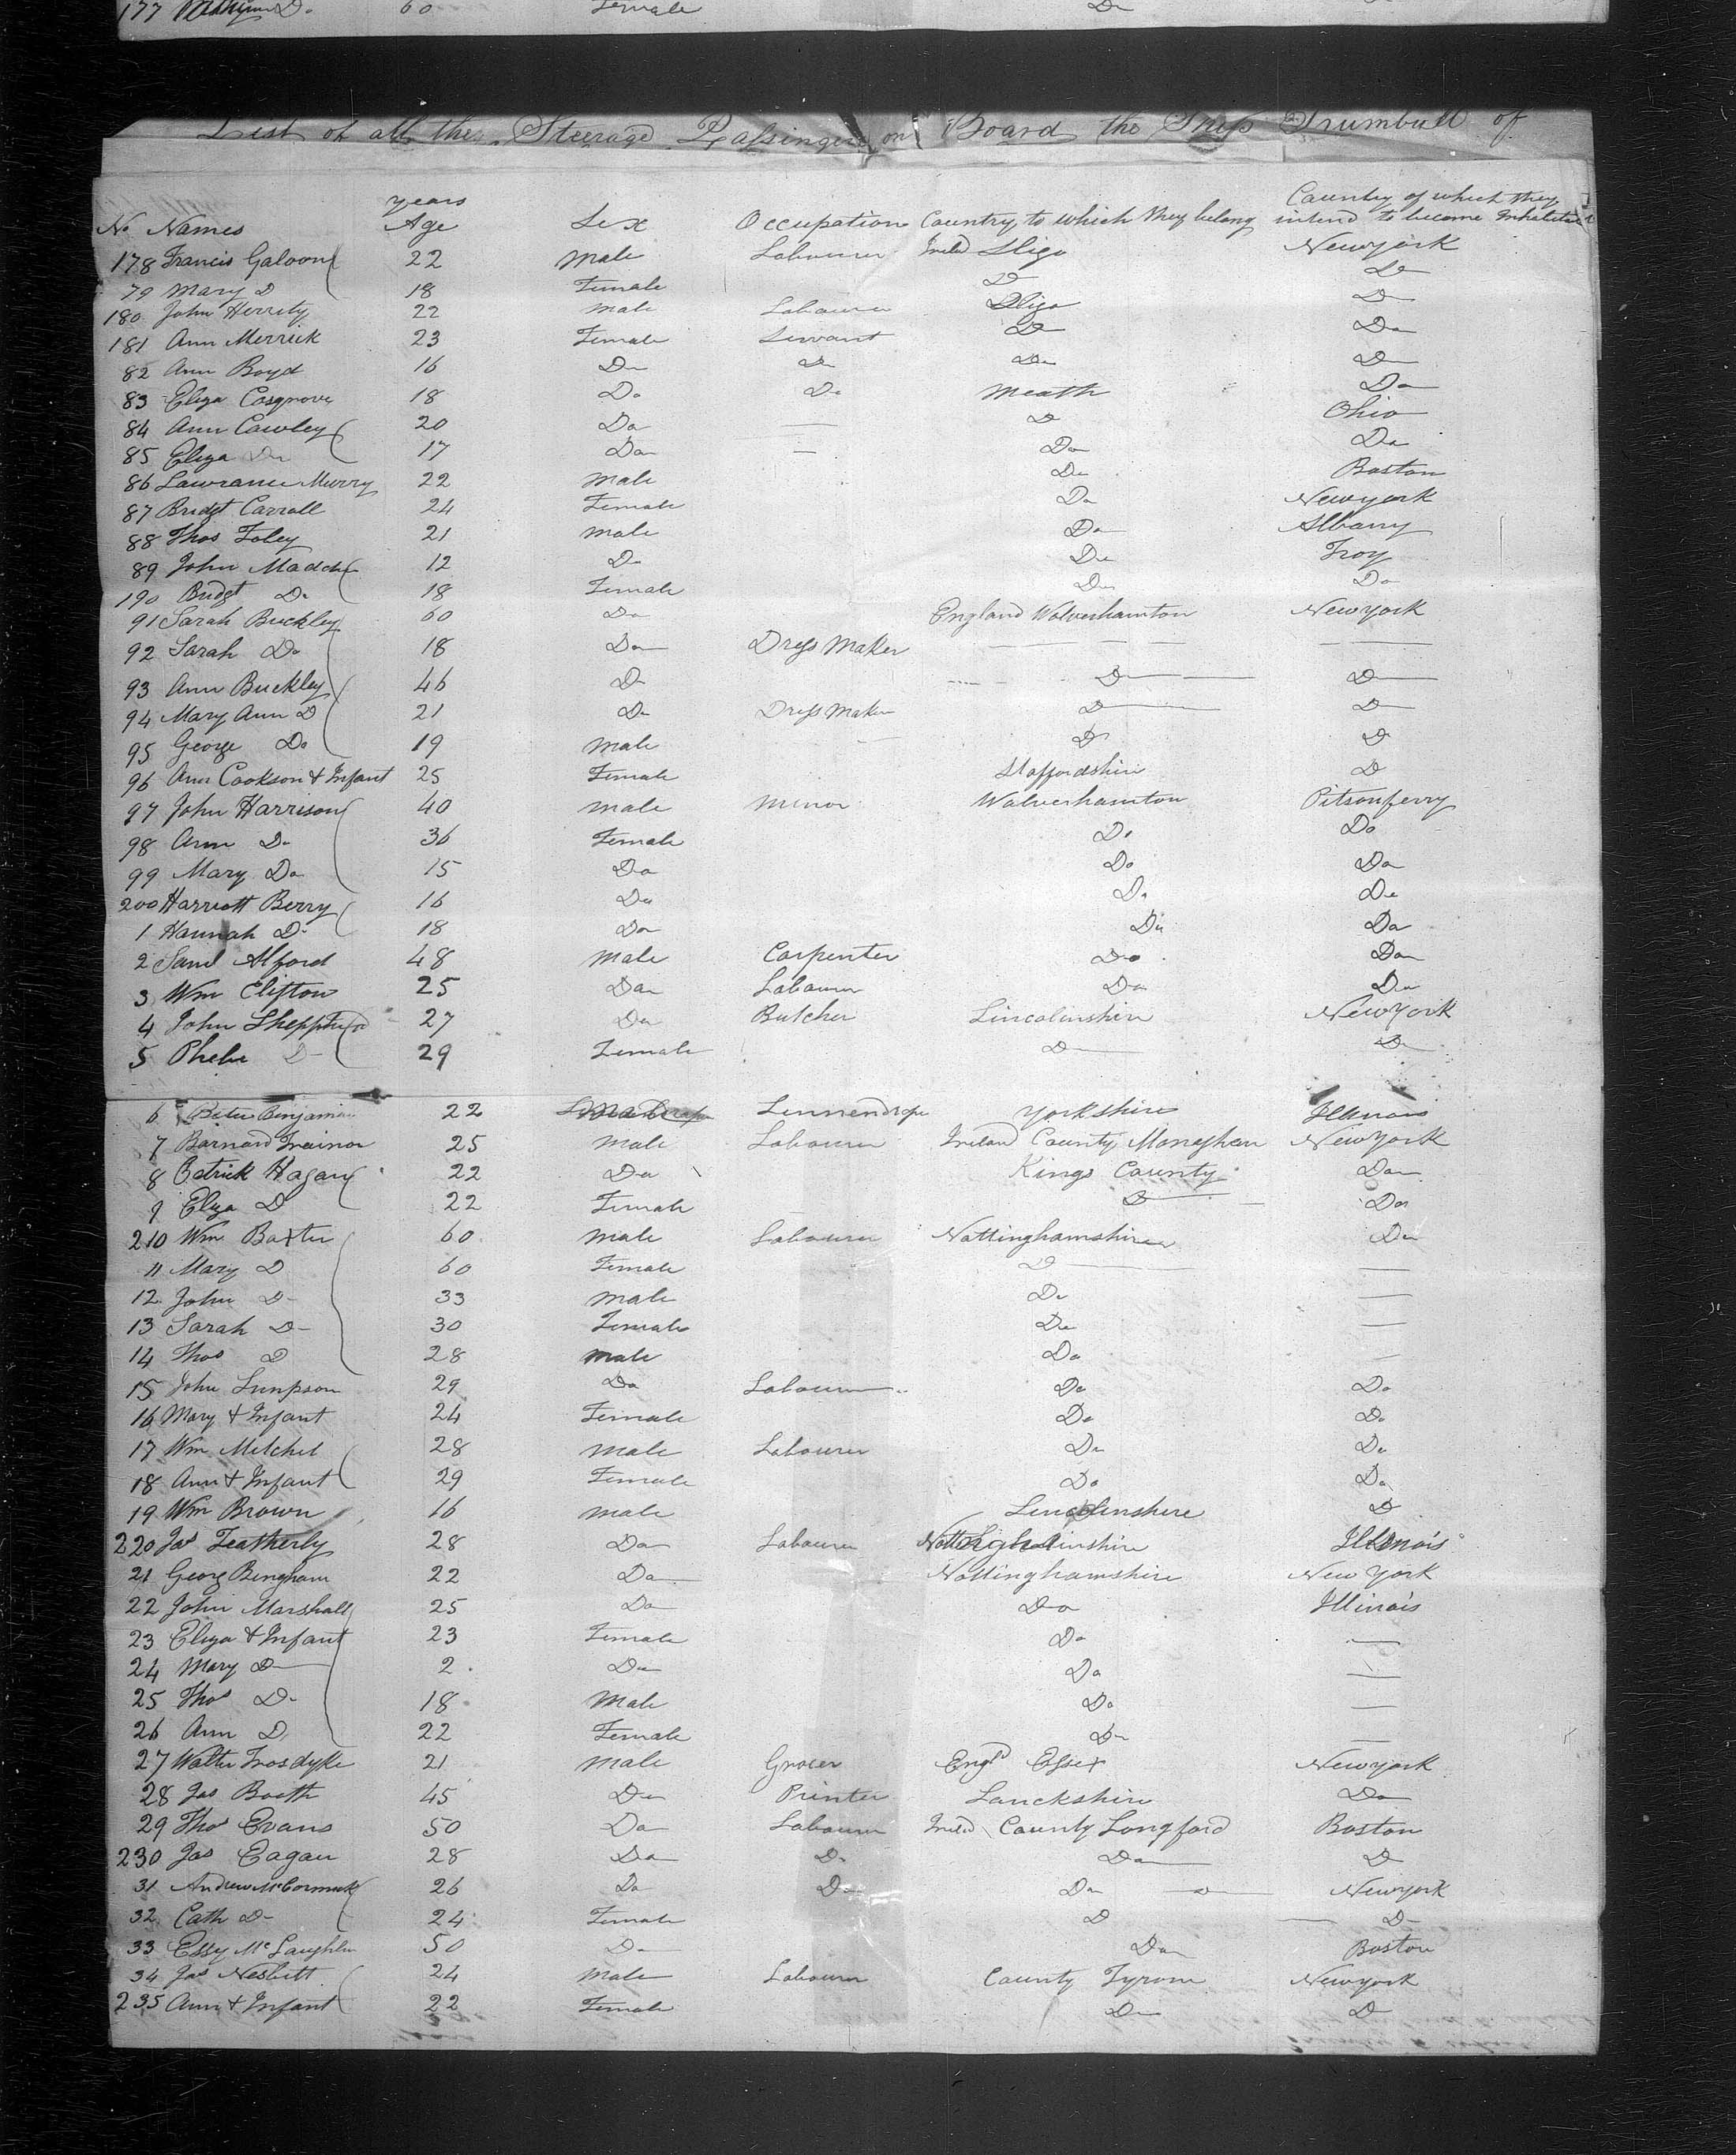 177 D. 60 Female Do
List of all the Steerage Passingers on Board the Ship Trumbull of
No Names years Age Sex Occupation Country to which they belong Country of which they intend to become Inhabitants
178 Francis Galoon 22 Male Labourer Ireld Sligo Newyork
79 Mary D 18 Female Do Do
180 John Herrity 22 Male Labourer Sligo Do
181 Ann Merrick 23 Female Servant Do Do
82 Ann Boyd 16 Do Do Do Do
83 Eliza Cosgrove 18 Do Do Meath Do
84 Ann Cawley 20 Do — Do Ohio
85 Eliza Do 17 Do — Do Do
86 Lawrance Murry 22 Male Do Boston
87 Bridgt Carroll 24 Female Do Newyork
88 Thos Foley 21 Male Do Albany
89 John Madden 12 Do Do Troy
190 Bridgt Do 18 Female Do Do
91 Sarah Buckley 60 Do England Wolverhamton Newyork
92 Sarah Do 18 Do Dress Maker — —
93 Ann Buckley 46 Do Do Do
94 Mary Ann D 21 Do Dress Maker Do Do
95 George Do 19 Male Do Do
96 Ann Cookson & Infant 25 Female Staffordshire Do
97 John Harrison 40 Male Minor Wolverhamton Pitsonferry
98 Ann Do 36 Female Do Do
99 Mary Do 15 Do Do Do
200 Harriott Berry 16 Do Do Do
1 Hannah Do 18 Do Do Do
2 Saml Alford 48 Male Carpenter Do Do
3 Wm Clifton 25 Do Labourer Do Do
4 John Shepperd 27 Do Butcher Lincolinshire Newyork
5 Phebe D 29 Female Do Do
6 Benjamin 22 Linnendraper Yorkshire Illinois
7 Barnard Trainor 25 Male Labourer Ireland County Monaghan Newyork
8 Patrick Hagan 22 Do Kings County Do
9 Eliza D 22 Female Do Do
210 Wm Baxter 60 Male Labourer Nottinghamshire Do
11 Mary D 60 Female Do —
12 John D 33 Male Do —
13 Sarah D 30 Female Do —
14 Thos D 28 Male Do —
15 John Simpson 29 Do Labourer Do Do
16 Mary & Infant 24 Female Do Do
17 Wm Mitchel 28 Male Labourer Do Do
18 Ann & Infant 29 Female Do Do
19 Wm Brown 16 Male Lincolinshire Do
220 Jas Featherly 28 Do Labourer Illinois
21 Georg Bingham 22 Do Nottinghamshire New York
22 John Marshall 25 Do Do Illinois
23 Eliza & Infant 23 Female Do —
24 Mary D 2 Do Do —
25 Thos D 18 Male Do —
26 Ann D 22 Female Do —
27 Walter Trosdyke 21 Male Grocer Engld Essex Newyork
28 Jas Booth 45 Do Printer Lanckshire Do
29 Thos Evans 50 Do Labourer Ireld County Longford Boston
230 Jas Eagan 28 Do Do Do Do
31 Andrew McCormick 26 Do Do Do Newyork
32 Cath D 24 Female D D
33 Essy McLaughlin 50 Do Do Boston
34 Jas Nesbitt 24 Male Labourer County Tyrone Newyork
235 Ann & Infant 22 Female Do D